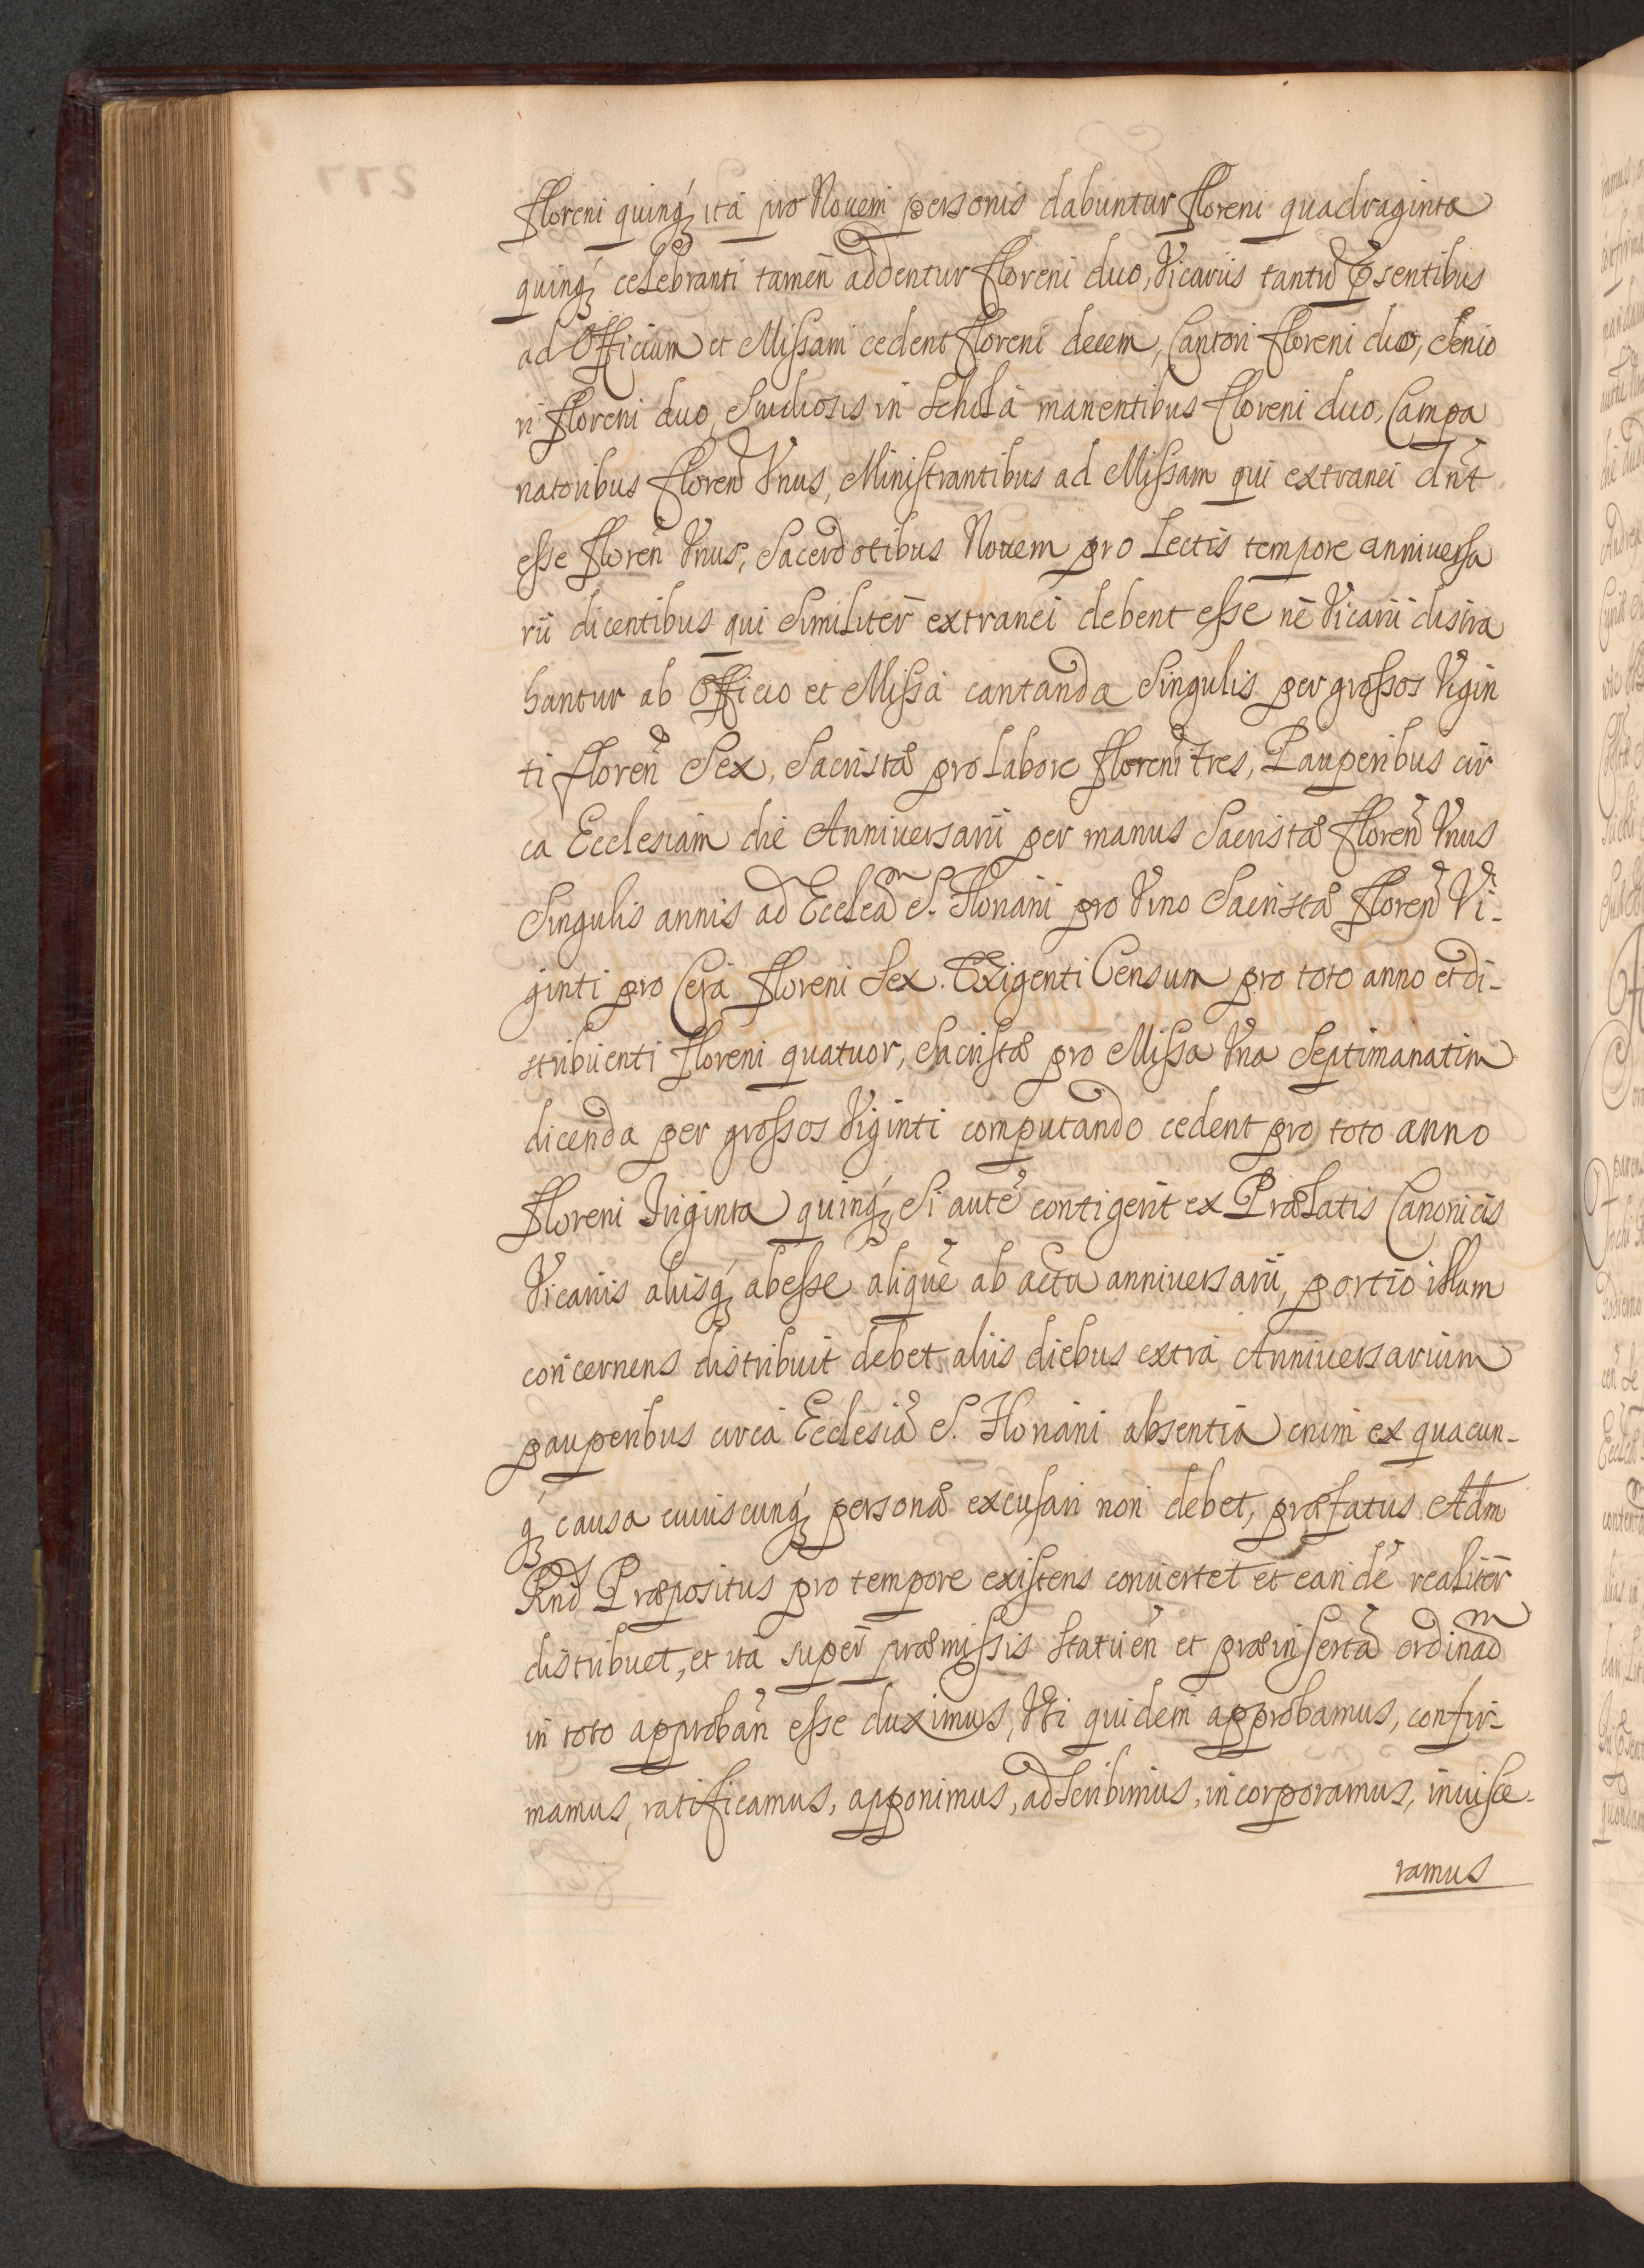 floreni quinq́ꝫ ita pro Nouem personis dabuntur floreni quadraginta
quinq́ꝫ celebranti tamen̄ addentur floreni duo, Vicariis tantũ p̃sentibus
ad Officium et Missam cedent floreni decem, Cantori floreni duo, Senio
ri floreni duo, Studiosis in Schola manentibus floreni duo, Campa
natoribus floreñ Vnus, Ministrantibus ad Missam qui extranei dñt
esse floreñ Vnus, Sacerdotibus Nouem pro Lectis tempore anniuersa
rii dicentibus qui Similiter̄ extranei debent esse nè Vicarii distra
hantur ab Officio et Missa cantanda Singulis per grossos Vigin
ti floreñ Sex, Sacristæ pro Labore floreñ tres, Pauperibus cir
ca Ecclesiam die Anniuersarii per manus Sacristæ floreñ Vnus
Singulis annis ad Eccleãm S. Floriani pro Vino Sacristæ floreñ Vi-
ginti pro Cera floreni Sex. Exigenti Censum pro toto anno et di-
stribuenti floreni quatuor, Sacristæ pro Missa Vna Septimanatim
dicenda per grossos Viginti computando cedent pro toto anno
floreni Triginta quinq́ꝫ Si autẽ contigerit ex Prælatis Canonicis
Vicariis aliisq́ꝫ abesse aliquẽ ab actu anniuersarii, portio illum
concernens distribuit debet aliis diebus extra Anniuersarium
pauperibus circa Ecclesiã S. Floriani absentia enim ex quacun-
q́ꝫ causa cuiuscunq́ꝫ personæ excusari non debet, præfatus Adm
Rnds Præpositus pro tempore existens conuertet et eandẽ realiter̄
distribuet, et ita super̄ præmissis Statueñ et præinsertã ordinaõm
in toto approbañ esse duximus, Vti quidem approbamus, confir-
mamus, ratificamus, apponimus, adscribimus, incorporamus, inuisce-
ramus